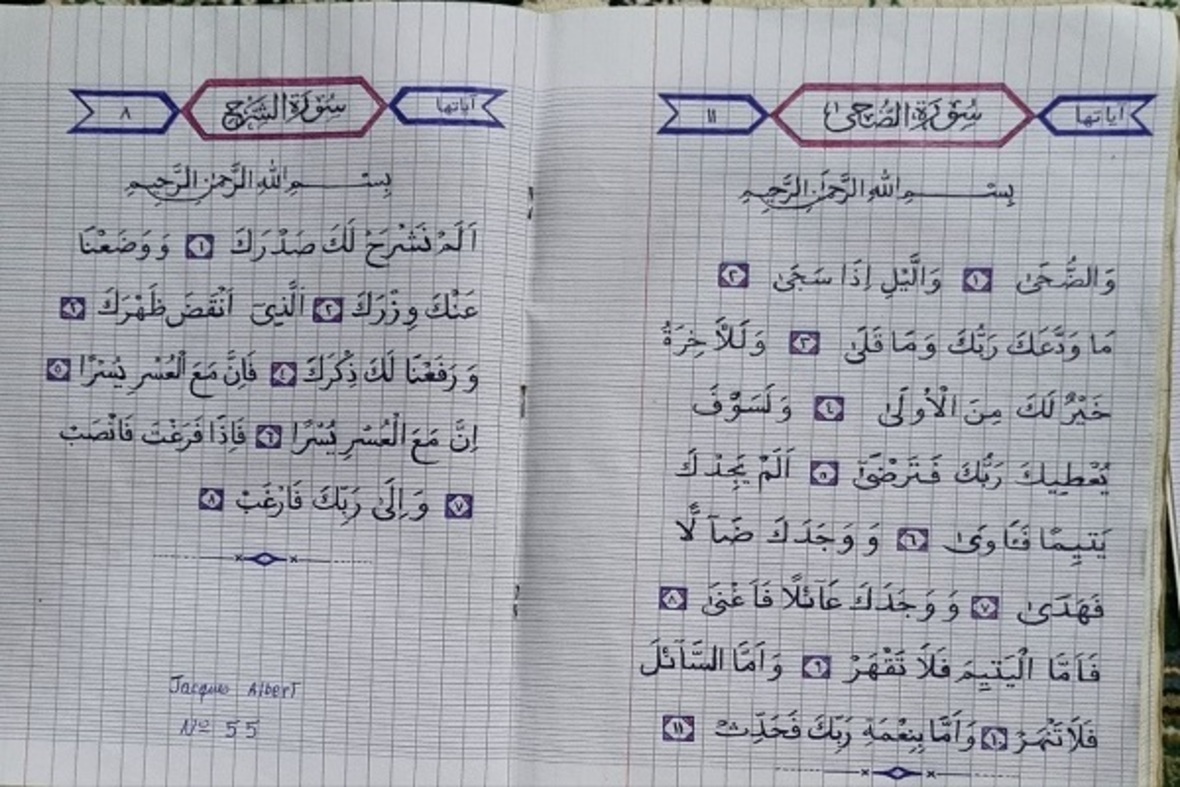 اياتها سُوْرَةُ الضُّحىٰ ١١
بِسْــــــمِ اللهِ الرَّحْمَٰنِ الرَّحِيمِ
وَالضُّحَىٰ ١ وَالَّيْلِ اِذَا سَجَىٰ ٢
مَا وَدَّعَكَ رَبُّكَ وَمَا قَلَىٰ ٣ وَلَلْاَخِرَةُ
خَيْرٌ لَكَ مِنَ الْاُولَىٰ ٤ وَلَسَوْفَ
يُعْطِيكَ رَبُّكَ فَتَرْضَىٰٓ ٥ اَلَمْ يَجِدْكَ
يَتِيمًا فَـَٔاوَىٰ ٦ وَوَجَدَكَ ضَآلًّا
فَهَدَىٰ ٧ وَوَجَدَكَ عَآئِلًا فَاَغْنَىٰ ٨
فَاَمَّا الْيَتِيمَ فَلَا تَقْهَرْ ٩ وَاَمَّا السَّآئِلَ
فَلَا تَنْهَرْ ١٠ وَاَمَّا بِنِعْمَةِ رَبِّكَ فَحَدِّثْ ١١
اياتها سُوْرَةُ الشَّرْحِ ٨
بِسْــــــمِ اللهِ الرَّحْمٰنِ الرَّحِيمِ
اَلَمْ نَشْرَحْ لَكَ صَدْرَكَ ١ وَوَضَعْنَا
عَنْكَ وِزْرَكَ ٢ اَلَّذِىٓ اَنْقَضَ ظَهْرَكَ ٣
وَرَفَعْنَا لَكَ ذِكْرَكَ ٤ فَاِنَّ مَعَ الْعُسْرِ يُسْرًا ٥
اِنَّ مَعَ الْعُسْرِ يُسْرًا ٦ فَاِذَا فَرَغْتَ فَانْصَبْ
٧ وَاِلَىٰ رَبِّكَ فَارْغَبْ ٨
Jacques Albert
Nº 55